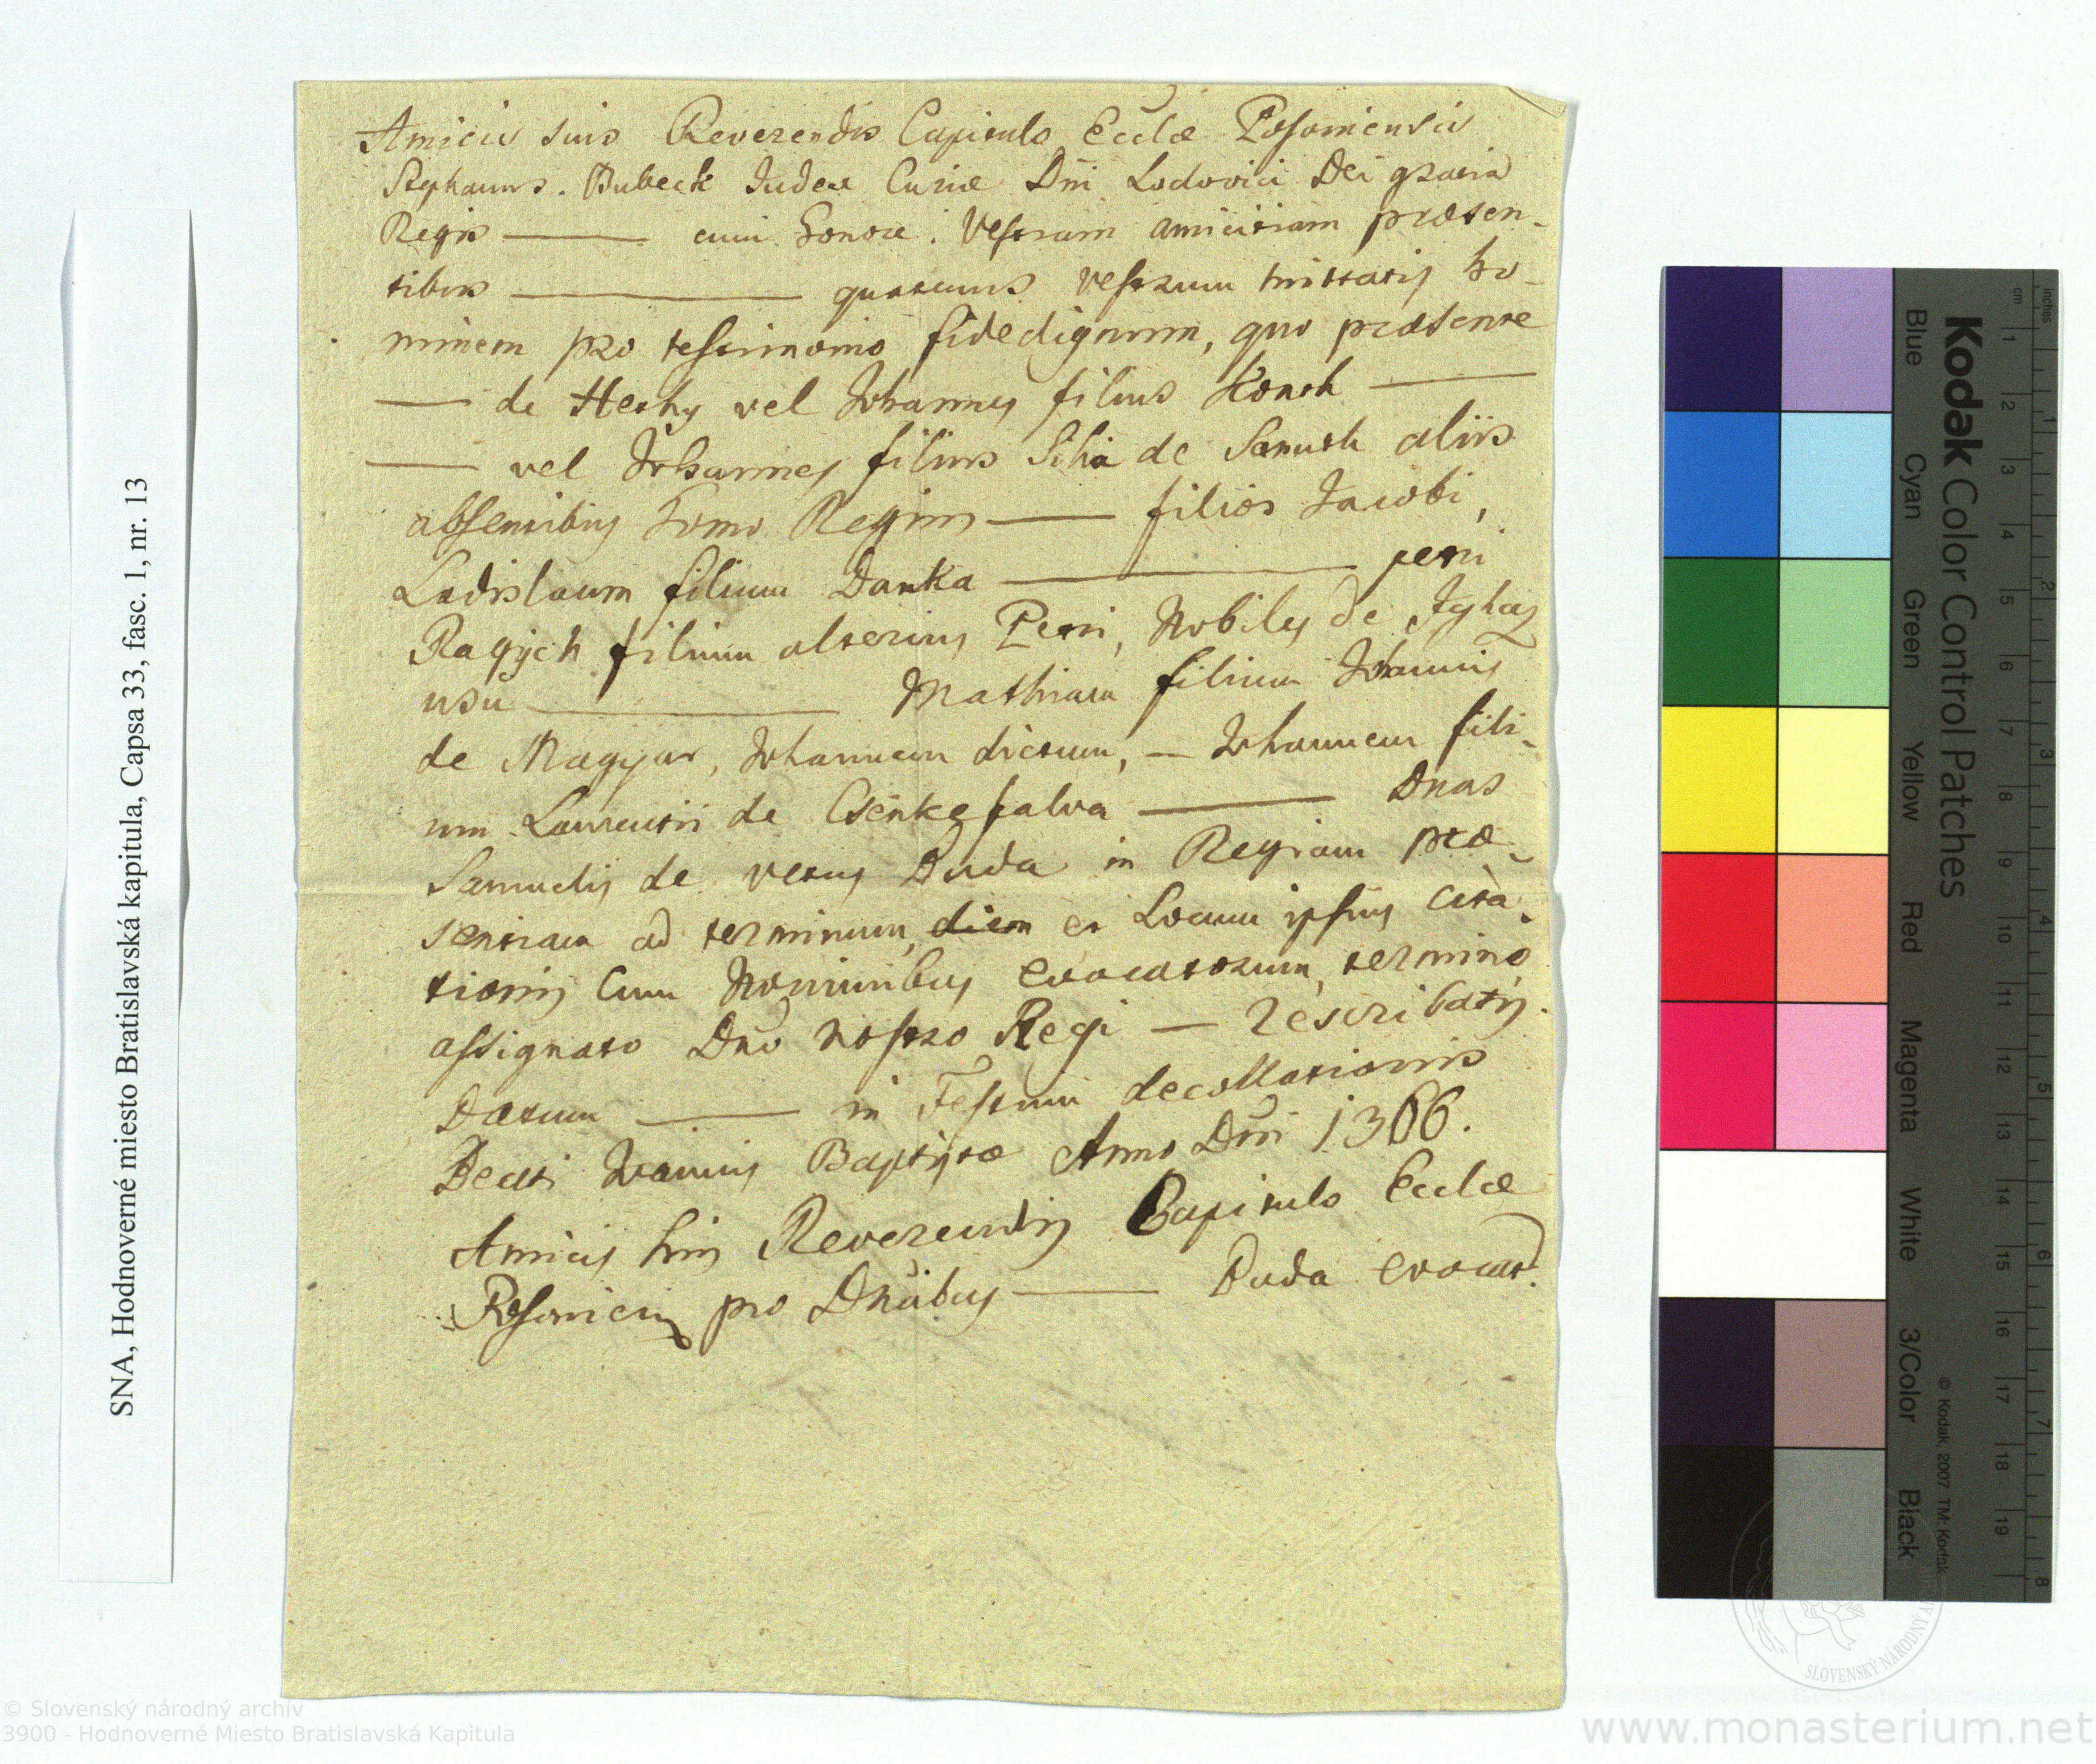 SNA, Hodnoverné miesto Bratislavská kapitula, Capsa 33, fasc. 1, nr. 13
Amicis suis Reverendis Capitulo Eccłæ Posoniensis
Stephanus. Bubeck Judex Curiæ Dni Lodovici Dei gratia
Regis ——— cum honore. Vestram amicitiam præsen-
tibus ——— quatenus vestrum mittatis ho-
minem pro testimonio fidedignum, quo præsente
— de Hethy vel Johannes filius Konth ———
—— vel Johannes filius Siha de Senusth aliis
absentibus homo Regius —— filios Jacobi,
Ladislaum filium Danka ——— petri
Ragych filium alterius Petri, Nobiles de Jghaz
usu ——— Mathiam filium Johannis
de Magyar, Johannem dictum, — Johannem fili-
um Laurentii de Csenkefalva ——— Dnas
Samuelis de vetus Buda in Regiam præ-
sentiam ad terminum, diem et Locum ipsius cita-
tionis Cum Nominibus evocatorum, termino
assignato Dno nostro Regi — rescribatis.
Datum ——— in Festum decollationis
Beati Joannis Baptistæ Anno Dni 1366.
Amicis suis Reverendis Capitulo Eccłæ
Posonien pro Dnabus ——— Buda evocat.
Kodak Color Control Patches
Blue Cyan Green Yellow Red Magenta White 3/Color Black
inches 1 2 3 4 5 6 7 8
cm 1 2 3 4 5 6 7 8 9 10 11 12 13 14 15 16 17 18 19
© Kodak, 2007 TM: Kodak
SLOVENSKÝ NÁRODNÝ
© Slovenský národný archív
3900 - Hodnoverné Miesto Bratislavská Kapitula
www.monasterium.net